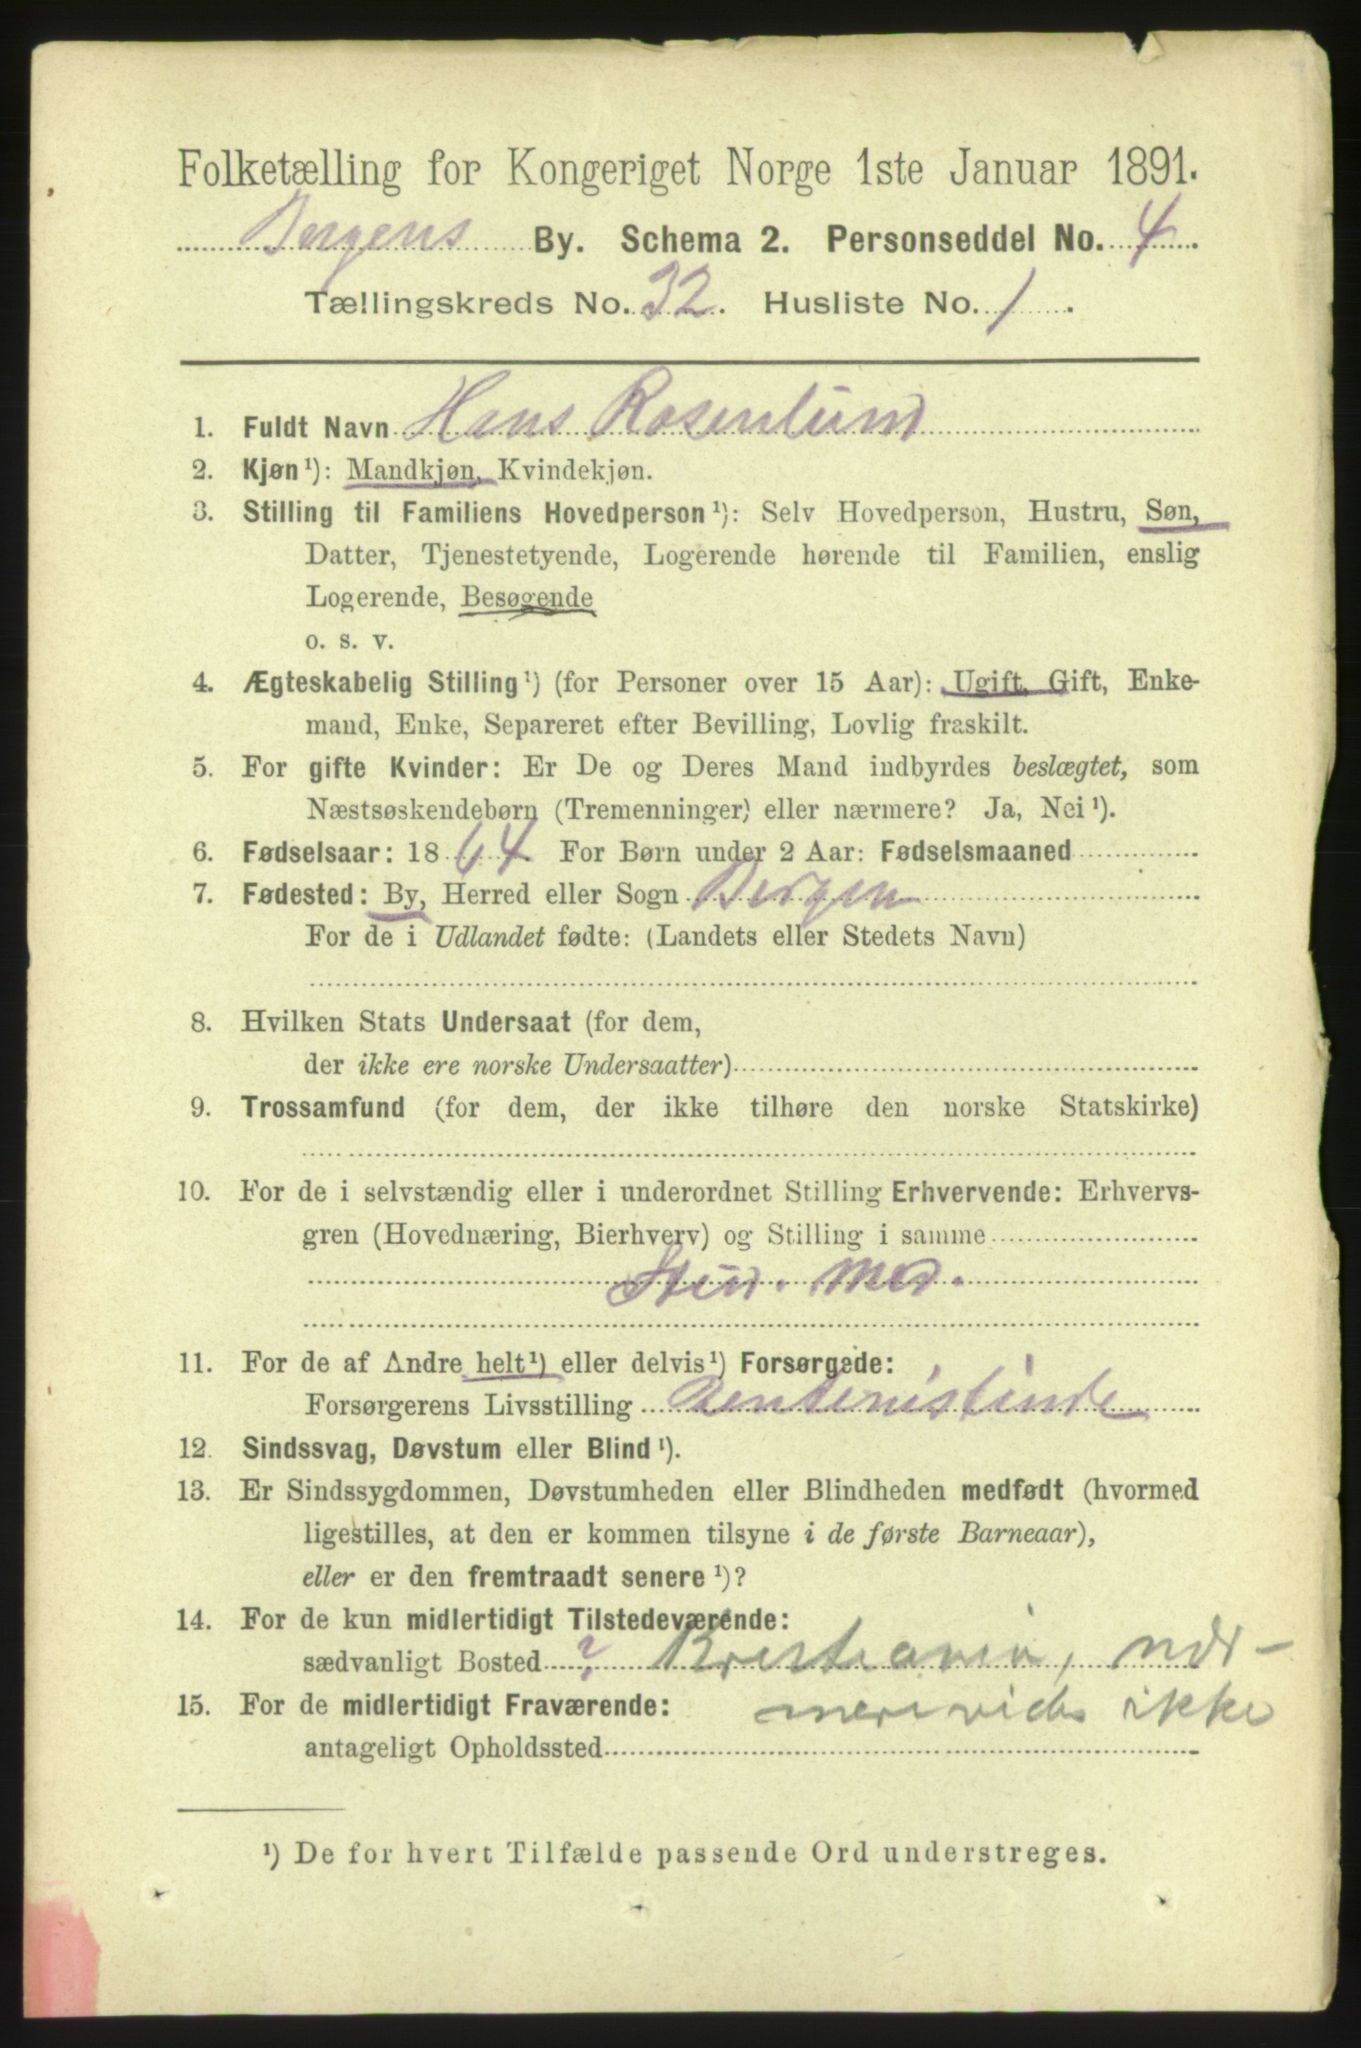 Folketælling for Kongeriget Norge 1ste Januar 1891.
Bergens By. Schema 2. Personseddel No. 4
Tællingskreds No. 32. Husliste No. 1.
1. Fuldt Navn Hans Rosenlund
2. Kjøn ¹): Mandkjøn, Kvindekjøn.
3. Stilling til Familiens Hovedperson ¹): Selv Hovedperson, Hustru, Søn,
Datter, Tjenestetyende, Logerende hørende til Familien, enslig
Logerende, Besøgende
o. s. v.
4. Ægteskabelig Stilling ¹) (for Personer over 15 Aar): Ugift, Gift, Enke-
mand, Enke, Separeret efter Bevilling, Lovlig fraskilt.
5. For gifte Kvinder: Er De og Deres Mand indbyrdes beslægtet, som
Næstsøskendebørn (Tremenninger) eller nærmere? Ja, Nei ¹).
6. Fødselsaar: 1864. For Børn under 2 Aar: Fødselsmaaned
7. Fødested: By, Herred eller Sogn Bergen
For de i Udlandet fødte: (Landets eller Stedets Navn)
8. Hvilken Stats Undersaat (for dem,
der ikke ere norske Undersaatter)
9. Trossamfund (for dem, der ikke tilhøre den norske Statskirke)
10. For de i selvstændig eller i underordnet Stilling Erhvervende: Erhvervs-
gren (Hovednæring, Bierhverv) og Stilling i samme
Stud. Med.
11. For de af Andre helt ¹) eller delvis ¹) Forsørgede:
Forsørgerens Livsstilling Rentenistinde
12. Sindssvag, Døvstum eller Blind ¹).
13. Er Sindssygdommen, Døvstumheden eller Blindheden medfødt (hvormed
ligestilles, at den er kommen tilsyne i de første Barneaar),
eller er den fremtraadt senere ¹)?
14. For de kun midlertidigt Tilstedeværende:
sædvanligt Bosted ? Kristiania, nær-
15. For de midlertidigt Fraværende: mere vides ikke
antageligt Opholdssted
¹) De for hvert Tilfælde passende Ord understreges.